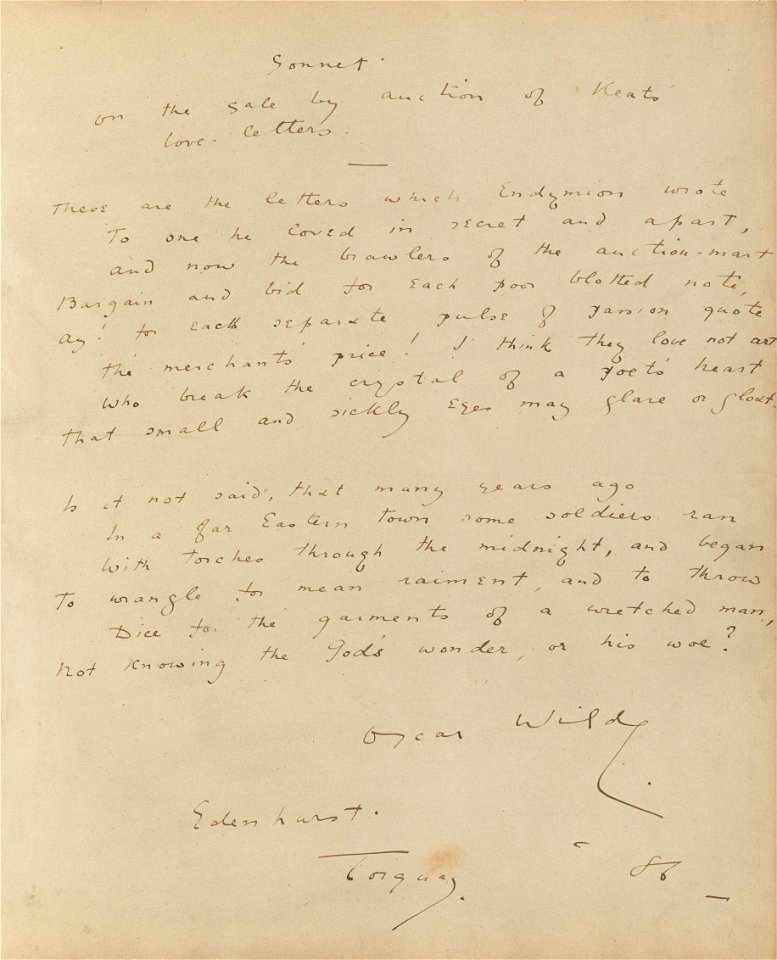 Sonnet.
on the sale by auction of Keats'
love letters.
These are the letters which Endymion wrote
To one he loved in secret and apart,
and now the brawlers of the auction-mart
Bargain and bid for each poor blotted note,
ay! for each separate pulse of passion quote
the merchant's price! I think they love not art
who break the crystal of a poet's heart
that small and sickly eyes may glare or gloat.
Is it not said, that many years ago
In a far Eastern town some soldiers ran
With torches through the midnight, and began
To wrangle for mean raiment, and to throw
Dice for the garments of a wretched man,
Not knowing the God's wonder, or his woe?
Oscar Wilde.
Edenhurst.
Torquay. 86